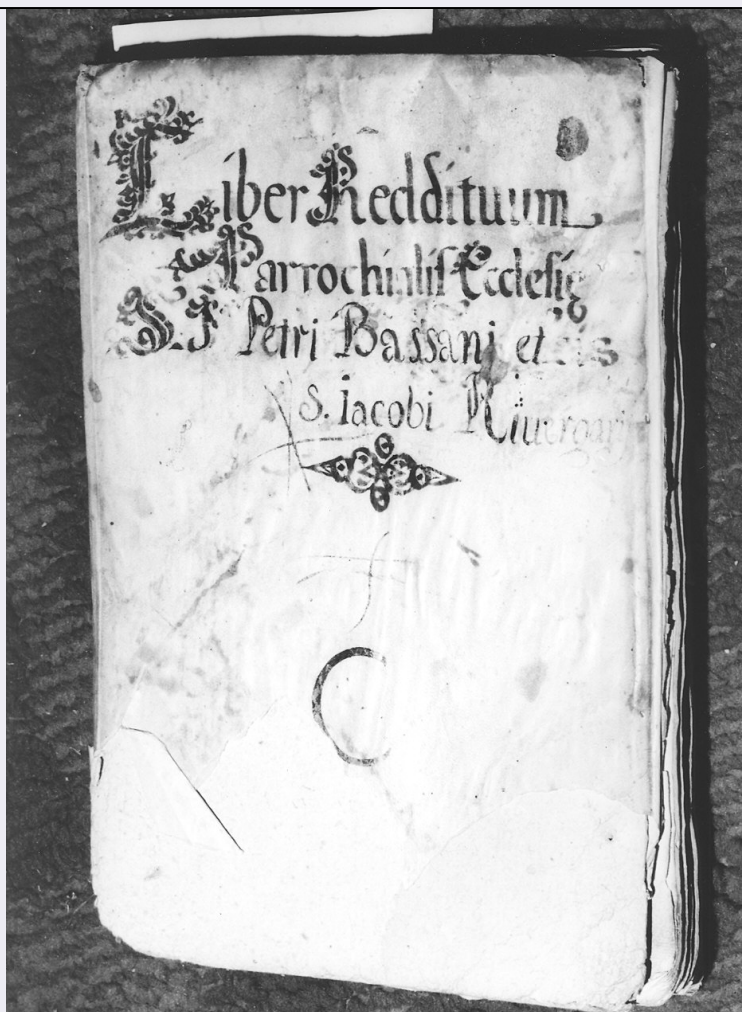 Liber Reddituum
Parrochialis Ecclesię
S. P Petri Bassani et
S. Iacobi
C